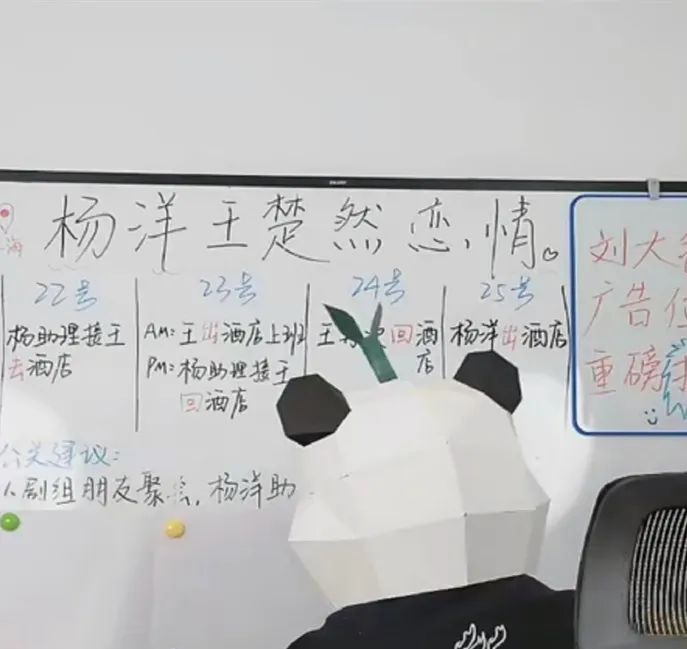 海
杨洋王楚然恋情。
22号
杨助理接王
去酒店
23号
AM:王出酒店上班
PM:杨助理接王
回酒店
24号
王 回酒
店
25号
杨洋出酒店
公关建议:
人剧组朋友聚会,杨洋助
刘大
广告位
重磅